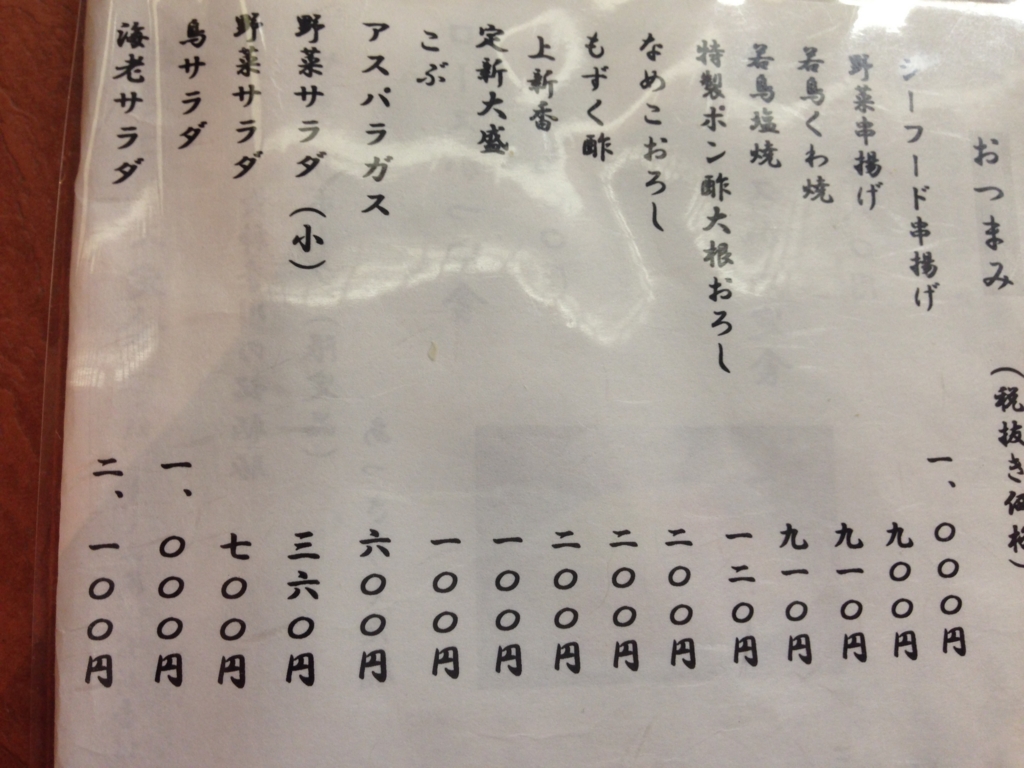 おつまみ （税抜き価格）
シーフード串揚げ 一、〇〇〇円
野菜串揚げ 九〇〇円
若鳥くわ焼 九一〇円
若鳥塩焼 九一〇円
特製ポン酢大根おろし 一二〇円
なめこおろし 二〇〇円
もずく酢 二〇〇円
上新香 二〇〇円
定新大盛 一〇〇円
こぶ 一〇〇円
アスパラガス 六〇〇円
野菜サラダ（小） 三六〇円
野菜サラダ 七〇〇円
鳥サラダ 一、〇〇〇円
海老サラダ 二、一〇〇円